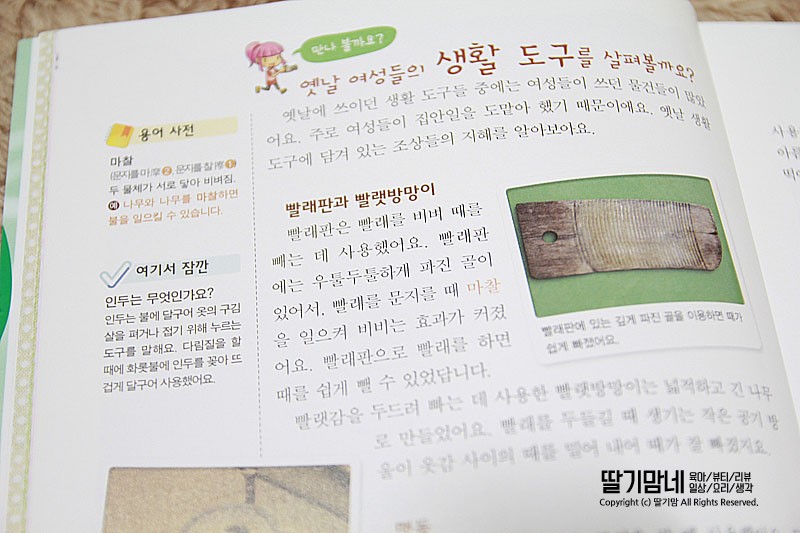 만나 볼까요?
옛날 여성들의 생활 도구를 살펴볼까요?
옛날에 쓰이던 생활 도구들 중에는 여성들이 쓰던 물건들이 많았
어요. 주로 여성들이 집안일을 도맡아 했기 때문이에요. 옛날 생활
도구에 담겨 있는 조상들의 지혜를 알아보아요.
용어 사전
마찰
(문지를 마 摩 2, 문지를 찰 擦 1)
두 물체가 서로 닿아 비벼짐.
예 나무와 나무를 마찰하면
불을 일으킬 수 있습니다.
여기서 잠깐
인두는 무엇인가요?
인두는 불에 달구어 옷의 구김
살을 펴거나 접기 위해 누르는
도구를 말해요. 다림질을 할
때에 화롯불에 인두를 꽂아 뜨
겁게 달구어 사용했어요.
빨래판과 빨랫방망이
빨래판은 빨래를 비벼 때를
빼는 데 사용했어요. 빨래판
에는 우툴두툴하게 파진 골이
있어서, 빨래를 문지를 때 마찰
을 일으켜 비비는 효과가 커졌
어요. 빨래판으로 빨래를 하면
때를 쉽게 뺄 수 있었답니다.
빨래판에 있는 깊게 파진 골을 이용하면 때가
쉽게 빠졌어요.
빨랫감을 두드려 빠는 데 사용한 빨랫방망이는 넓적하고 긴 나무
로 만들었어요. 빨래를 두들길 때 생기는 작은 공기 방
울이 옷감 사이의 때를 밀어 내어 때가 잘 빠졌지요.
사용
이름
딸기맘네 육아/뷰티/리뷰
일상/요리/생각
Copyright (c) 딸기맘 All Rights Reserved.